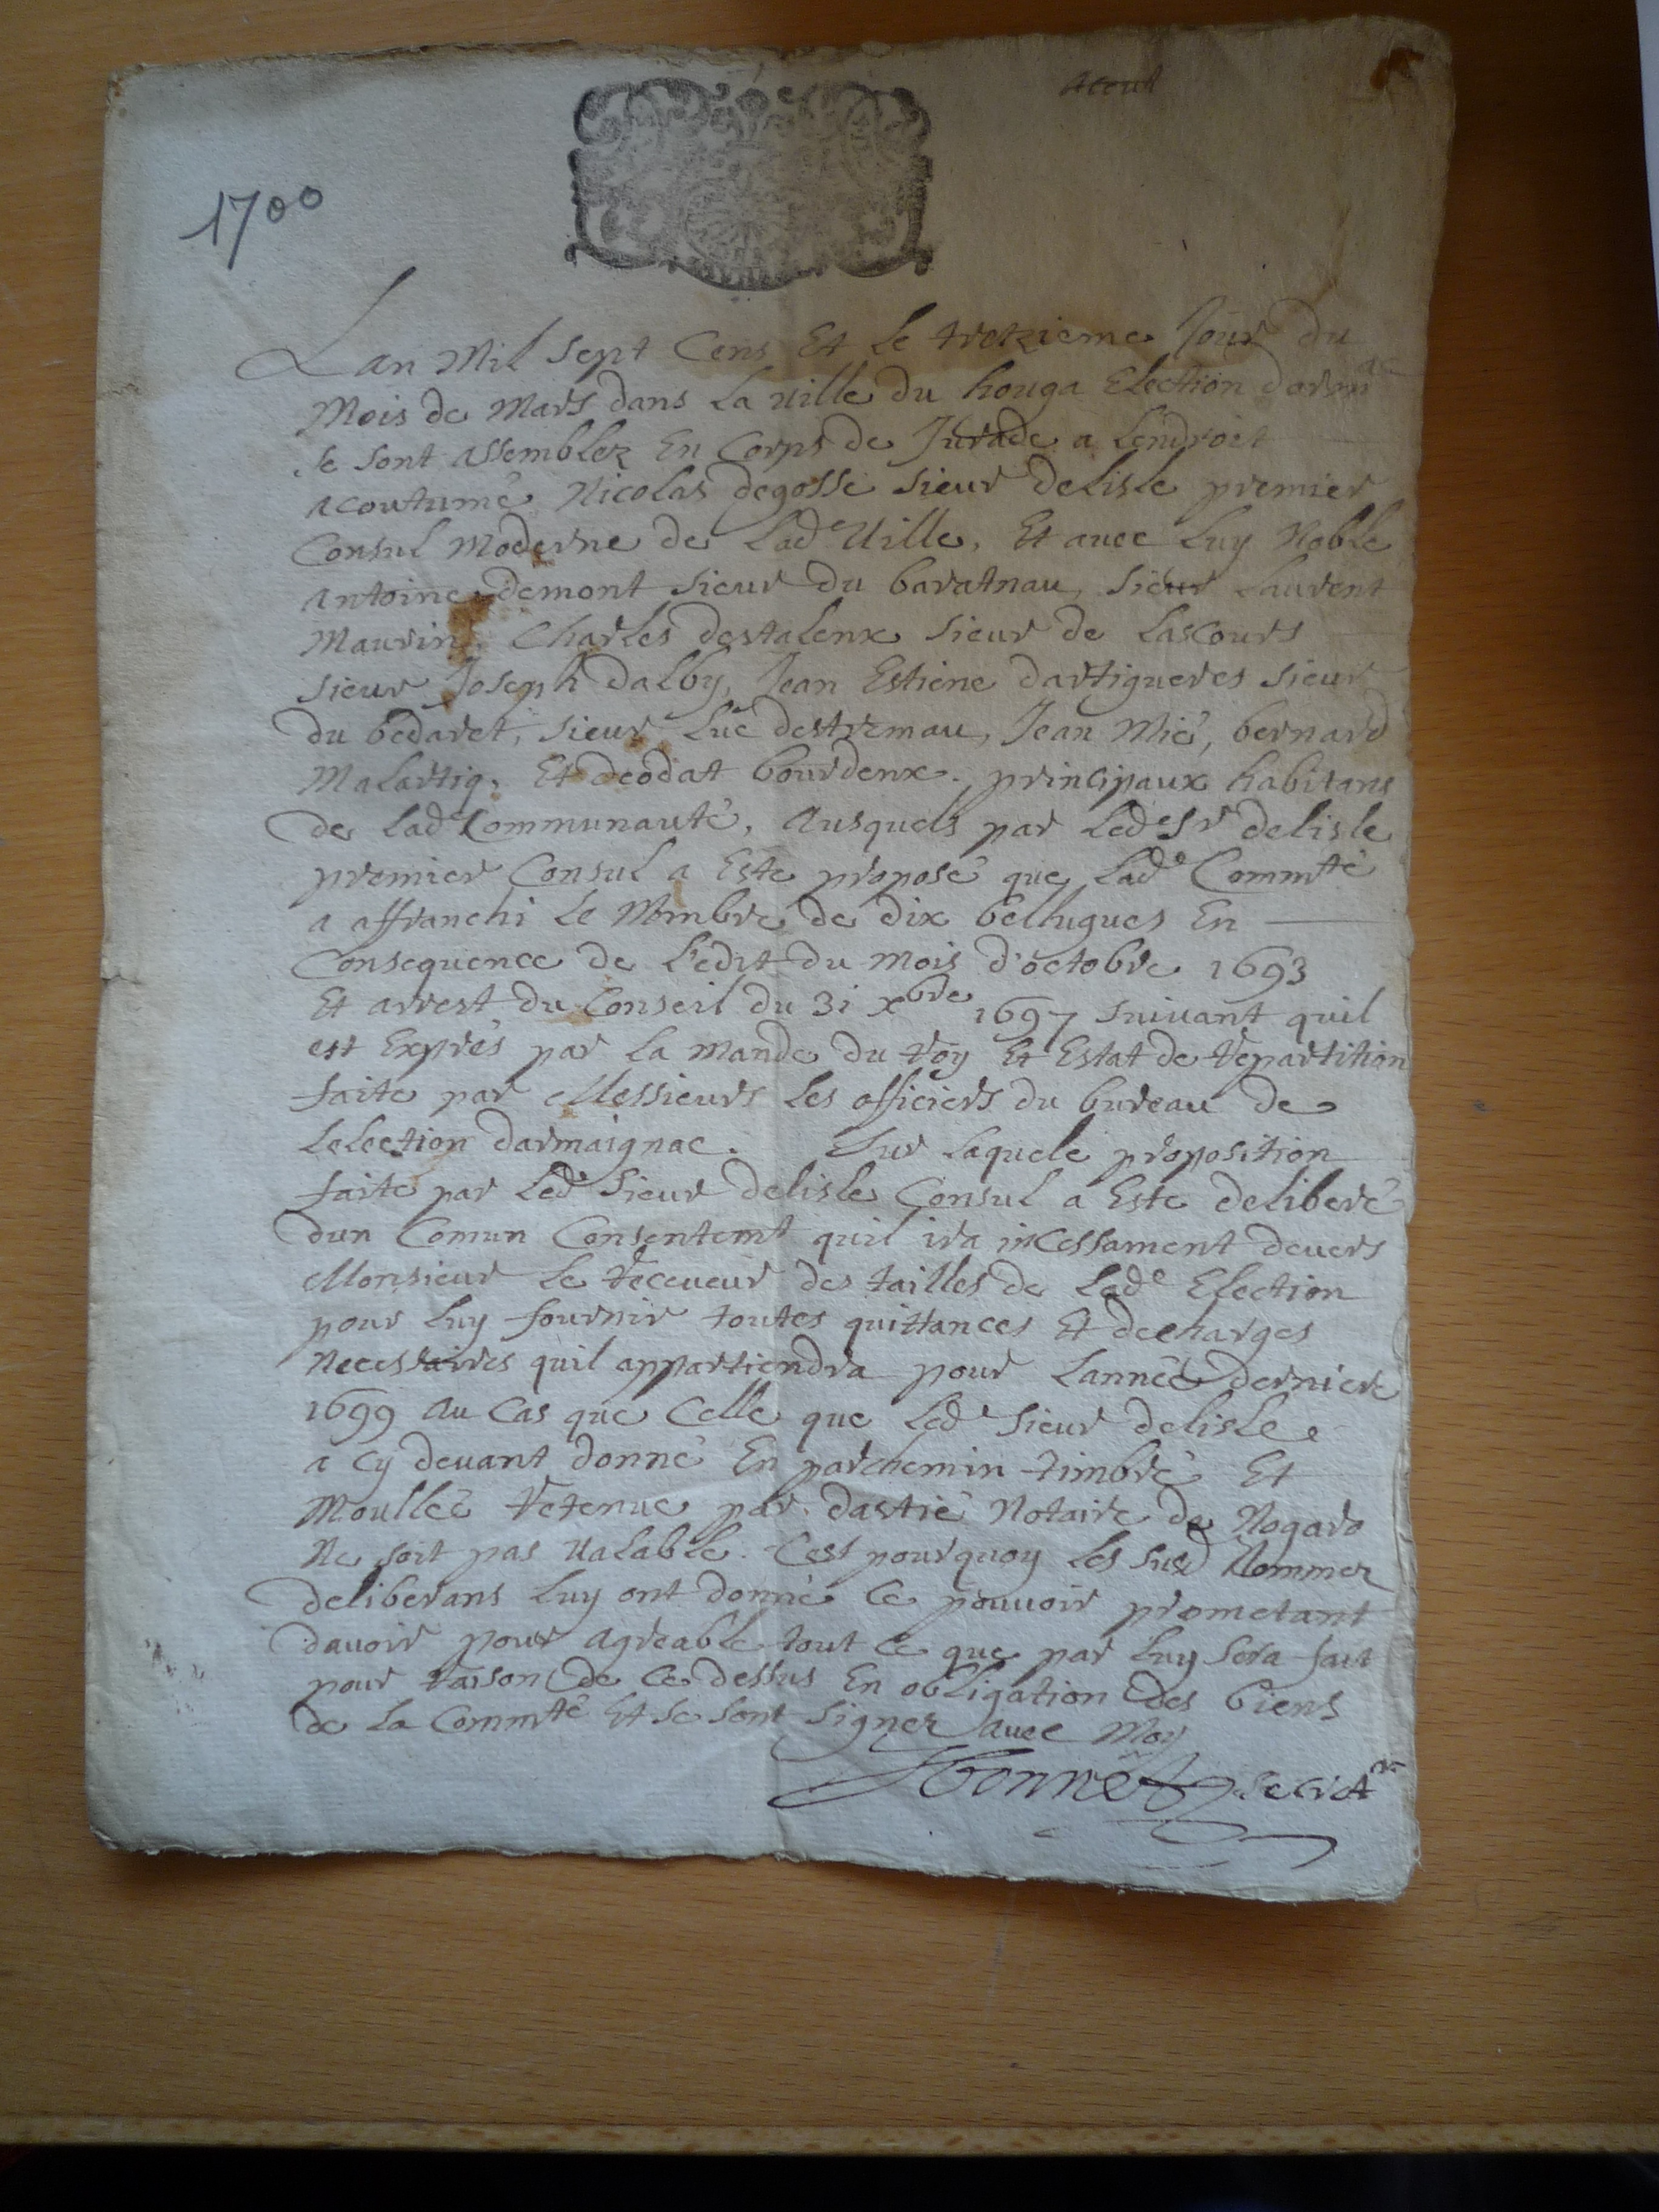 1700
Lan Mil sept Cens Et Le tretzieme Jour du
Mois de Mars dans La uille du houga Election darmac
se sont assemblez En Corps de Jurade a Lendroit
acoutumé Nicolas degosse sieur delisle premier
Consul Moderne de Lade Uille, Et auec Luy Noble
antoine demont sieur du baratnau, sieur Laurent
Maurin, Charles destalenx sieur de Lascours
sieur Joseph dalby, Jean Estiene dartigueres sieur
du bedaret, sieur Luc destremau, Jean Mié, bernard
Malartiq, Et deodat bourdenx, principaux habitans
de Lade Communauté, Ausquels par Led sr delisle
premier Consul a Este proposé que Lade Commté
a affranchi Le Nombre de dix bellugues En
Consequence de L'edit du mois d'octobre 1693
Et arrest du Conseil du 31 xbre 1697 suiuant quil
est Exprés par La mande du roy Et Estat de repartition
faite par Messieurs Les officiers du bureau de
Lelection darmaignac. Sur Laquele proposition
faite par Led sieur delisle Consul a Este deliberé
dun Comun Consentemt quil ira incessament deuers
Monsieur Le receueur des tailles de Lade Election
pour Luy fournir toutes quittances Et decharges
Necessaires quil appartiendra pour Lannéé derniere
1699 Au Cas que Celle que Led sieur delisle
a Cy deuant donné En parchemin timbré Et
Moulleé retenue par dastié Notaire de Nogaro
Ne soit pas Ualable. Cest pourquoy Les susd Nommez
deliberans Luy ont donné Ce pouuoir prometant
dauoir pour agreable tout Ce que par Luy sera fait
pour raison de Ce dessus En obligation des biens
de La Commté Et se sont signez auec Moy
Bonnet secretr